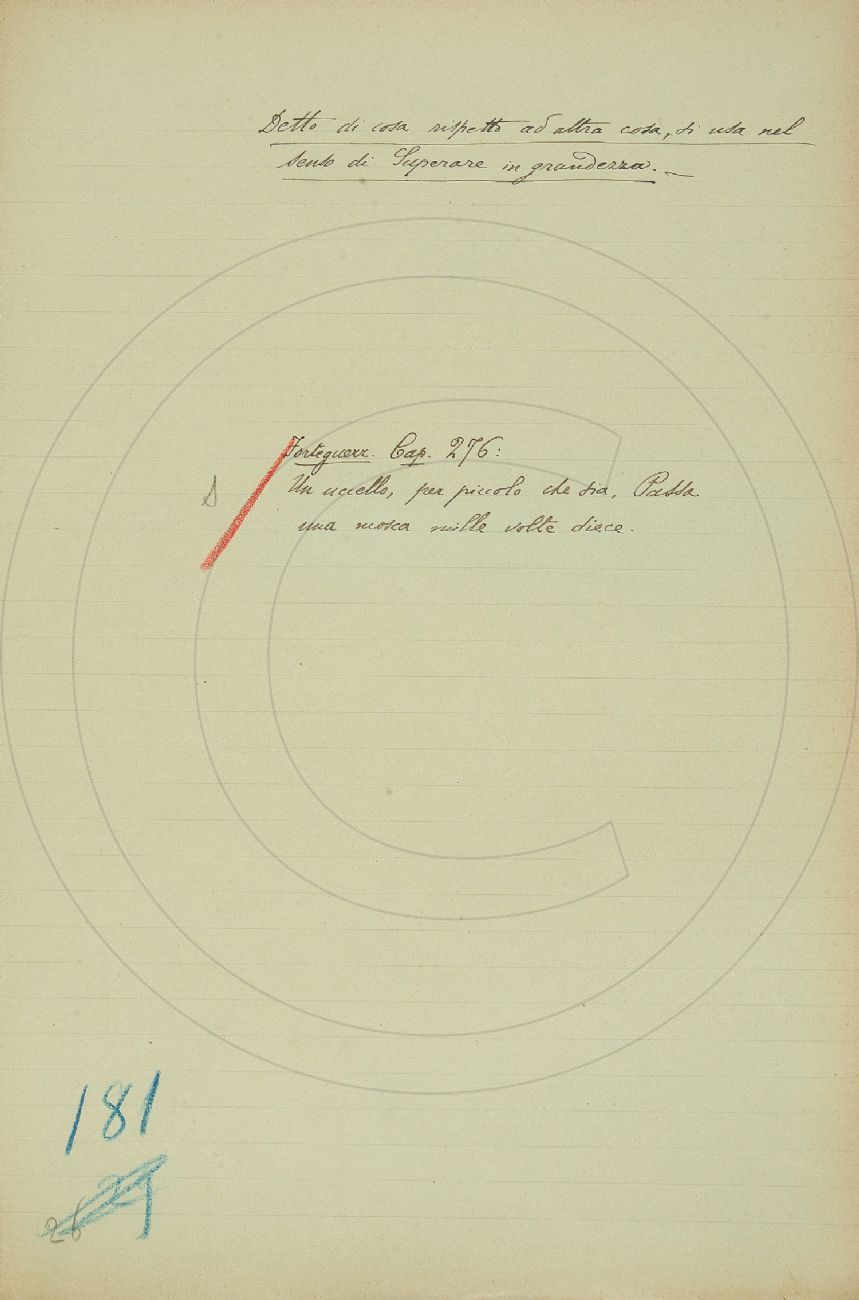 Detto di cosa rispetto ad altra cosa, si usa nel
senso di Superare in grandezza. _
Forteguerr. Cap. 276:
Un uccello, per piccolo che sia, Passa
una mosca mille volte diece.
181
26